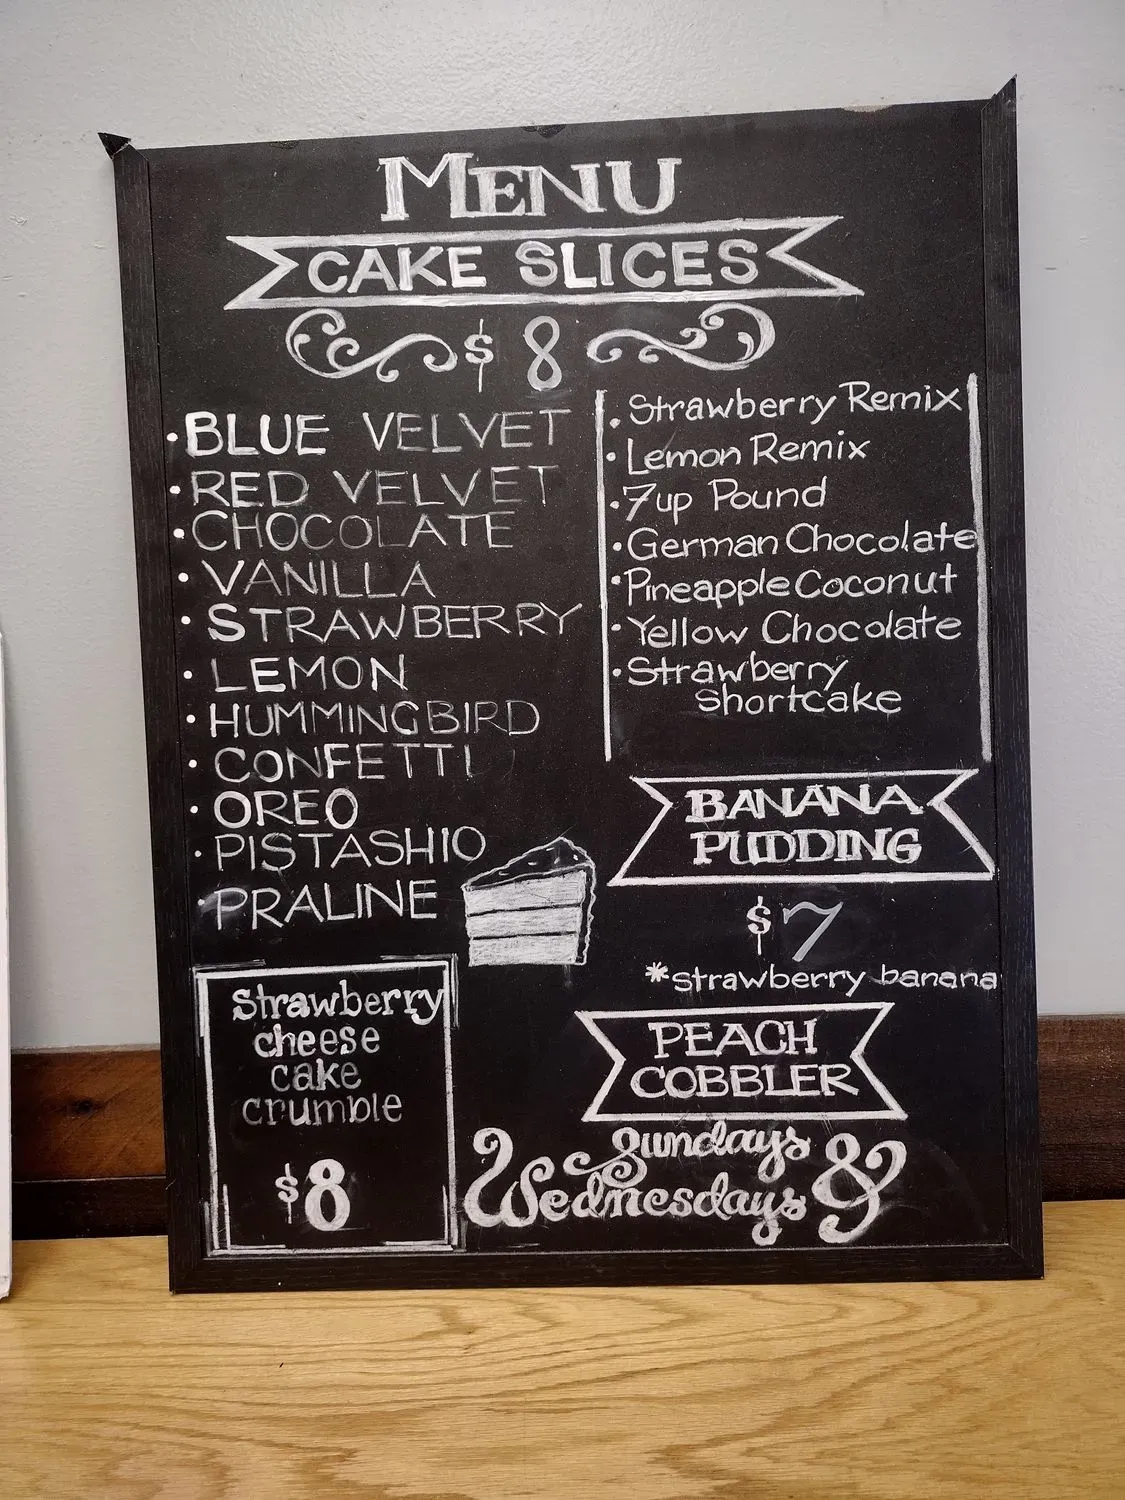 MENU
CAKE SLICES
$ 8
• BLUE VELVET
• RED VELVET
• CHOCOLATE
• VANILLA
• STRAWBERRY
• LEMON
• HUMMINGBIRD
• CONFETTI
• OREO
• PISTASHIO
• PRALINE
• Strawberry Remix
• Lemon Remix
• 7up Pound
• German Chocolate
• Pineapple Coconut
• Yellow Chocolate
• Strawberry
shortcake
BANANA
PUDDING
$7
*strawberry banana
Strawberry
cheese
cake
crumble
$8
PEACH
COBBLER
Sundays
Wednesdays &